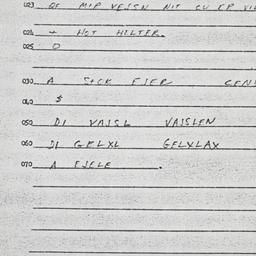 023 OF MIP VESSN NIT CU EP VIL
024 + HOT HILTER.
025 O
030 A SICK EJER CENI
040 $
050 DI VAISL VAISLEN
060 DI GELXL GELXLAX
070 A EJELE.